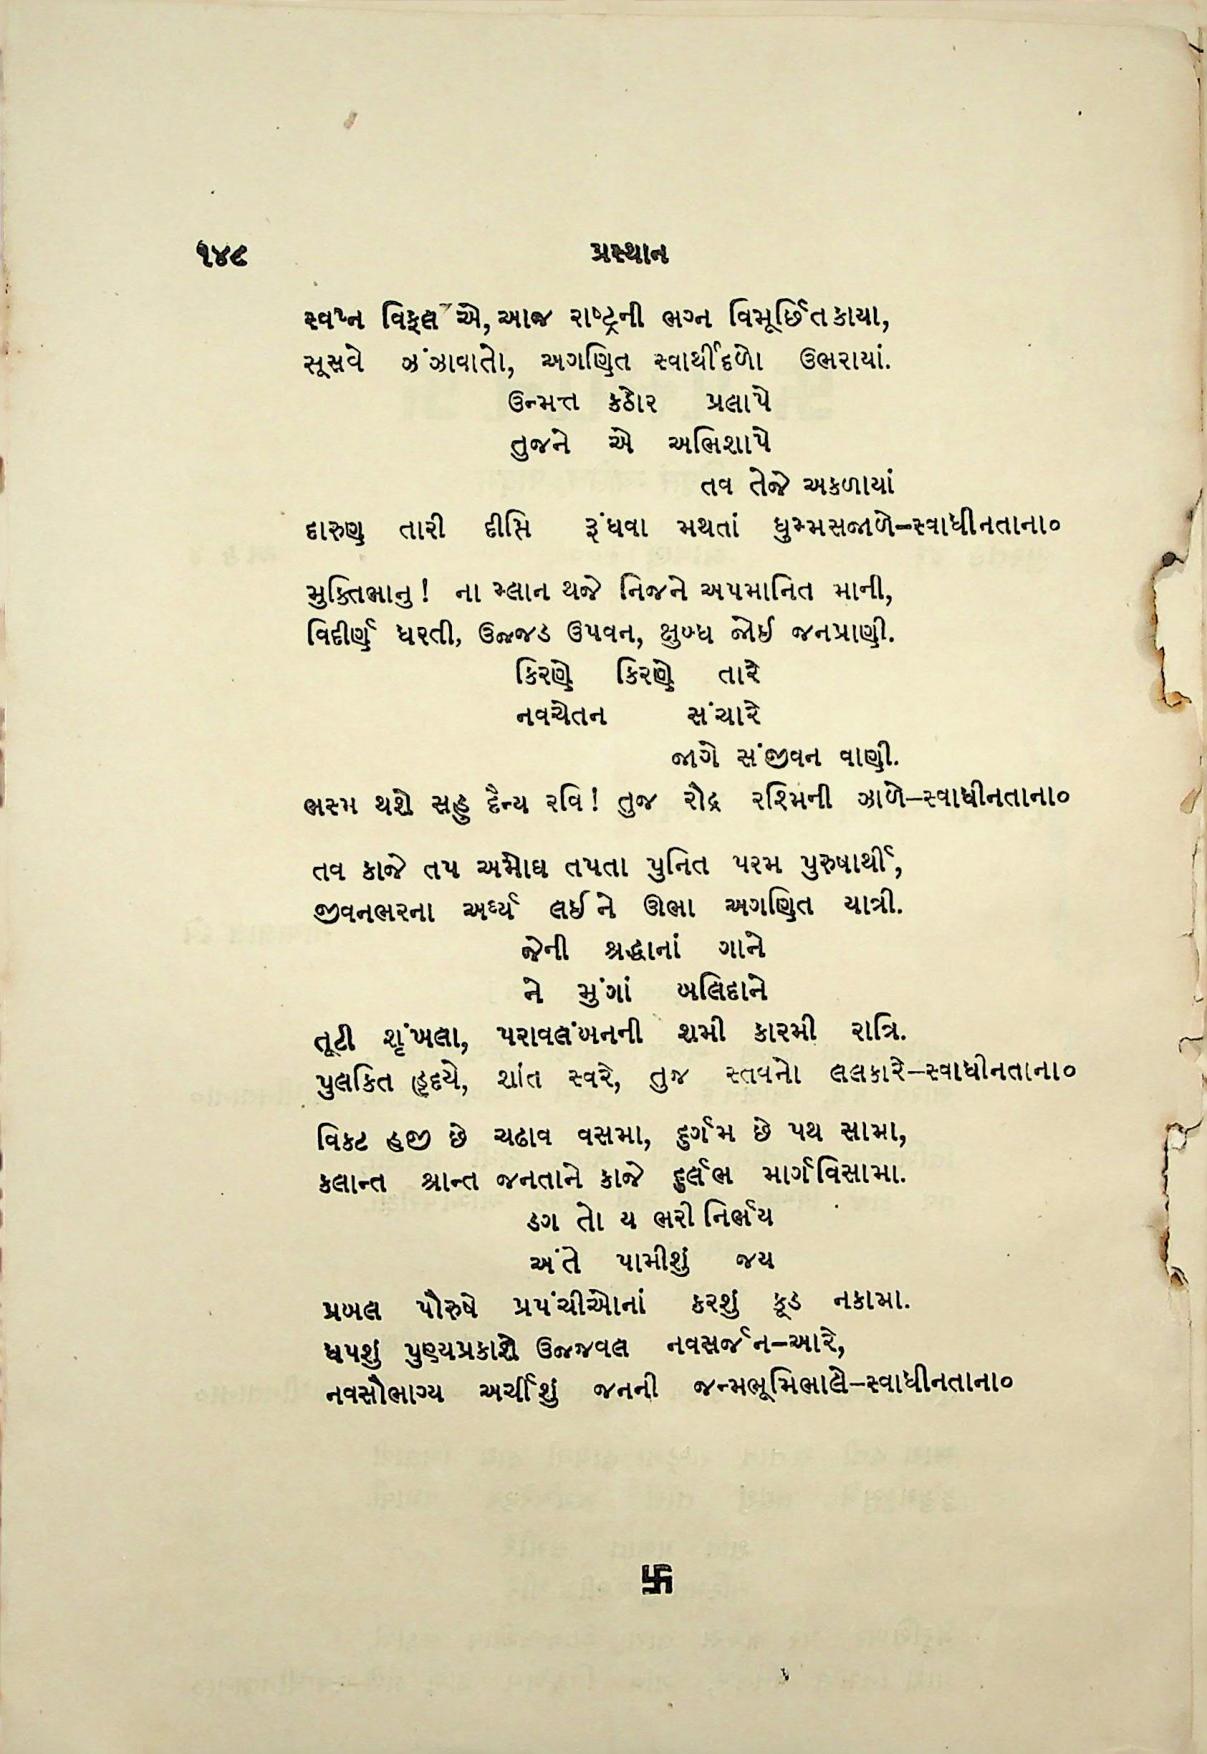 ૧૪૮
પ્રસ્થાન
સ્વપ્ન વિફલ એ, આજ રાષ્ટ્રની ભગ્ન વિમૂર્છિત કાયા,
સૂસવે ઝંઝાવાતો, અગણિત સ્વાર્થીદળો ઉભરાયાં.
ઉન્મત્ત કઠોર પ્રલાપે
તુજને એ અભિશાપે
તવ તેજે અકળાયાં
દારુણ તારી દીપ્તિ રૂંધવા મથતાં ધુમ્મસજાળે–સ્વાધીનતાના૦
મુક્તિભાનુ! ના મ્લાન થજે નિજને અપમાનિત માની,
વિદીર્ણ ધરતી, ઉજ્જડ ઉપવન, ક્ષુબ્ધ જોઈ જનપ્રાણી.
કિરણે કિરણે તારે
નવચેતન સંચારે
જાગે સંજીવન વાણી.
ભસ્મ થશે સહુ દૈન્ય રવિ! તુજ રૌદ્ર રશ્મિની ઝાળે–સ્વાધીનતાના૦
તવ કાજે તપ અમોઘ તપતા પુનિત પરમ પુરુષાર્થી,
જીવનભરના અર્ઘ્ય લઈને ઊભા અગણિત યાત્રી.
જેની શ્રદ્ધાનાં ગાને
ને મુંગાં બલિદાને
તૂટી શૃંખલા, પરાવલંબનની શમી કારમી રાત્રિ.
પુલકિત હૃદયે, શાંત સ્વરે, તુજ સ્તવનો લલકારે–સ્વાધીનતાના૦
વિકટ હજી છે ચઢાવ વસમા, દુર્ગમ છે પથ સામા,
કલાન્ત શ્રાન્ત જનતાને કાજે દુર્લભ માર્ગવિસામા.
ડગ તો ય ભરી નિર્ભય
અંતે પામીશું જય
પ્રબલ પૌરુષે પ્રપંચીઓનાં કરશું કૂડ નકામા.
ધપશું પુણ્યપ્રકાશે ઉજ્જવલ નવસર્જન–આરે,
નવસૌભાગ્ય અર્ચીશું જનની જન્મભૂમિભાલે–સ્વાધીનતાના૦